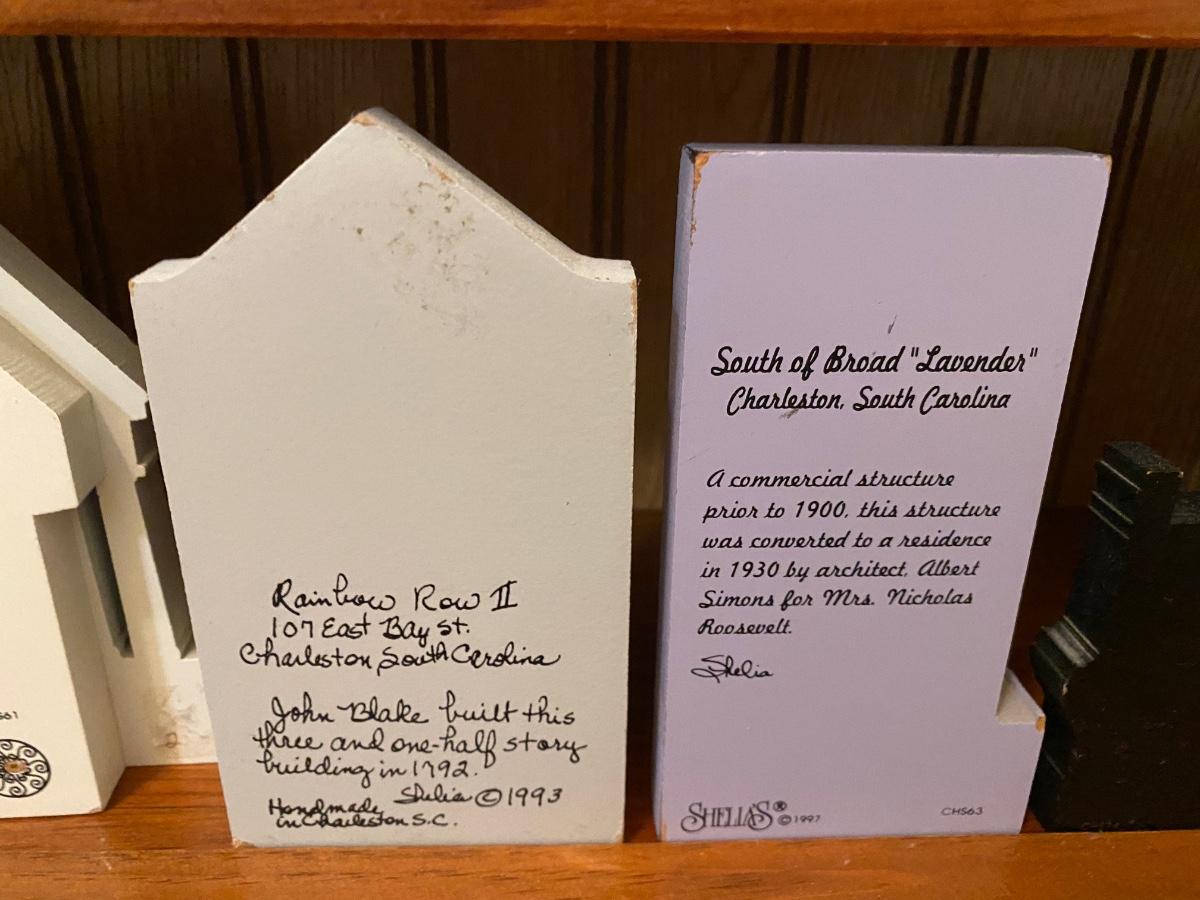 S61
Rainbow Row II
107 East Bay St.
Charleston, South Carolina
John Blake built this
three and one-half story
building in 1792.
Shelia © 1993
Handmade
in Charleston S.C.
South of Broad "Lavender"
Charleston, South Carolina
A commercial structure
prior to 1900, this structure
was converted to a residence
in 1930 by architect, Albert
Simons for Mrs. Nicholas
Roosevelt.
Shelia
SHELIA'S® © 1997
CHS63